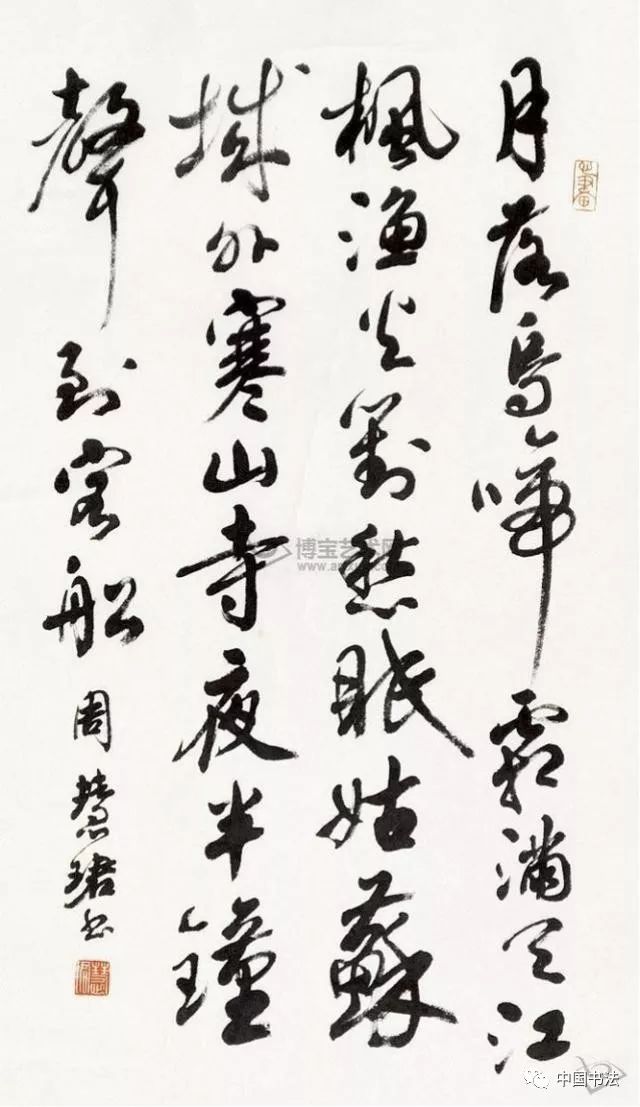 月落烏啼霜滿天江
楓漁火對愁眠姑蘇
城外寒山寺夜半鐘
聲到客船 周慧珺书
博宝艺术网
中国书法